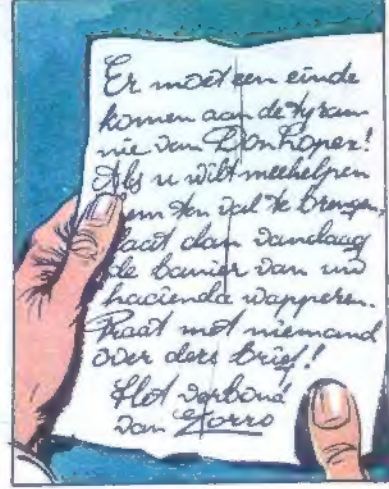 Er moet een einde
komen aan de tyran-
nie van Don Lopez!
Als u wilt meehelpen
hem ten val te brengen,
laat dan vandaag
de banier van uw
hacienda wapperen.
Praat met niemand
over deze brief!
Het verbond
van Zorro